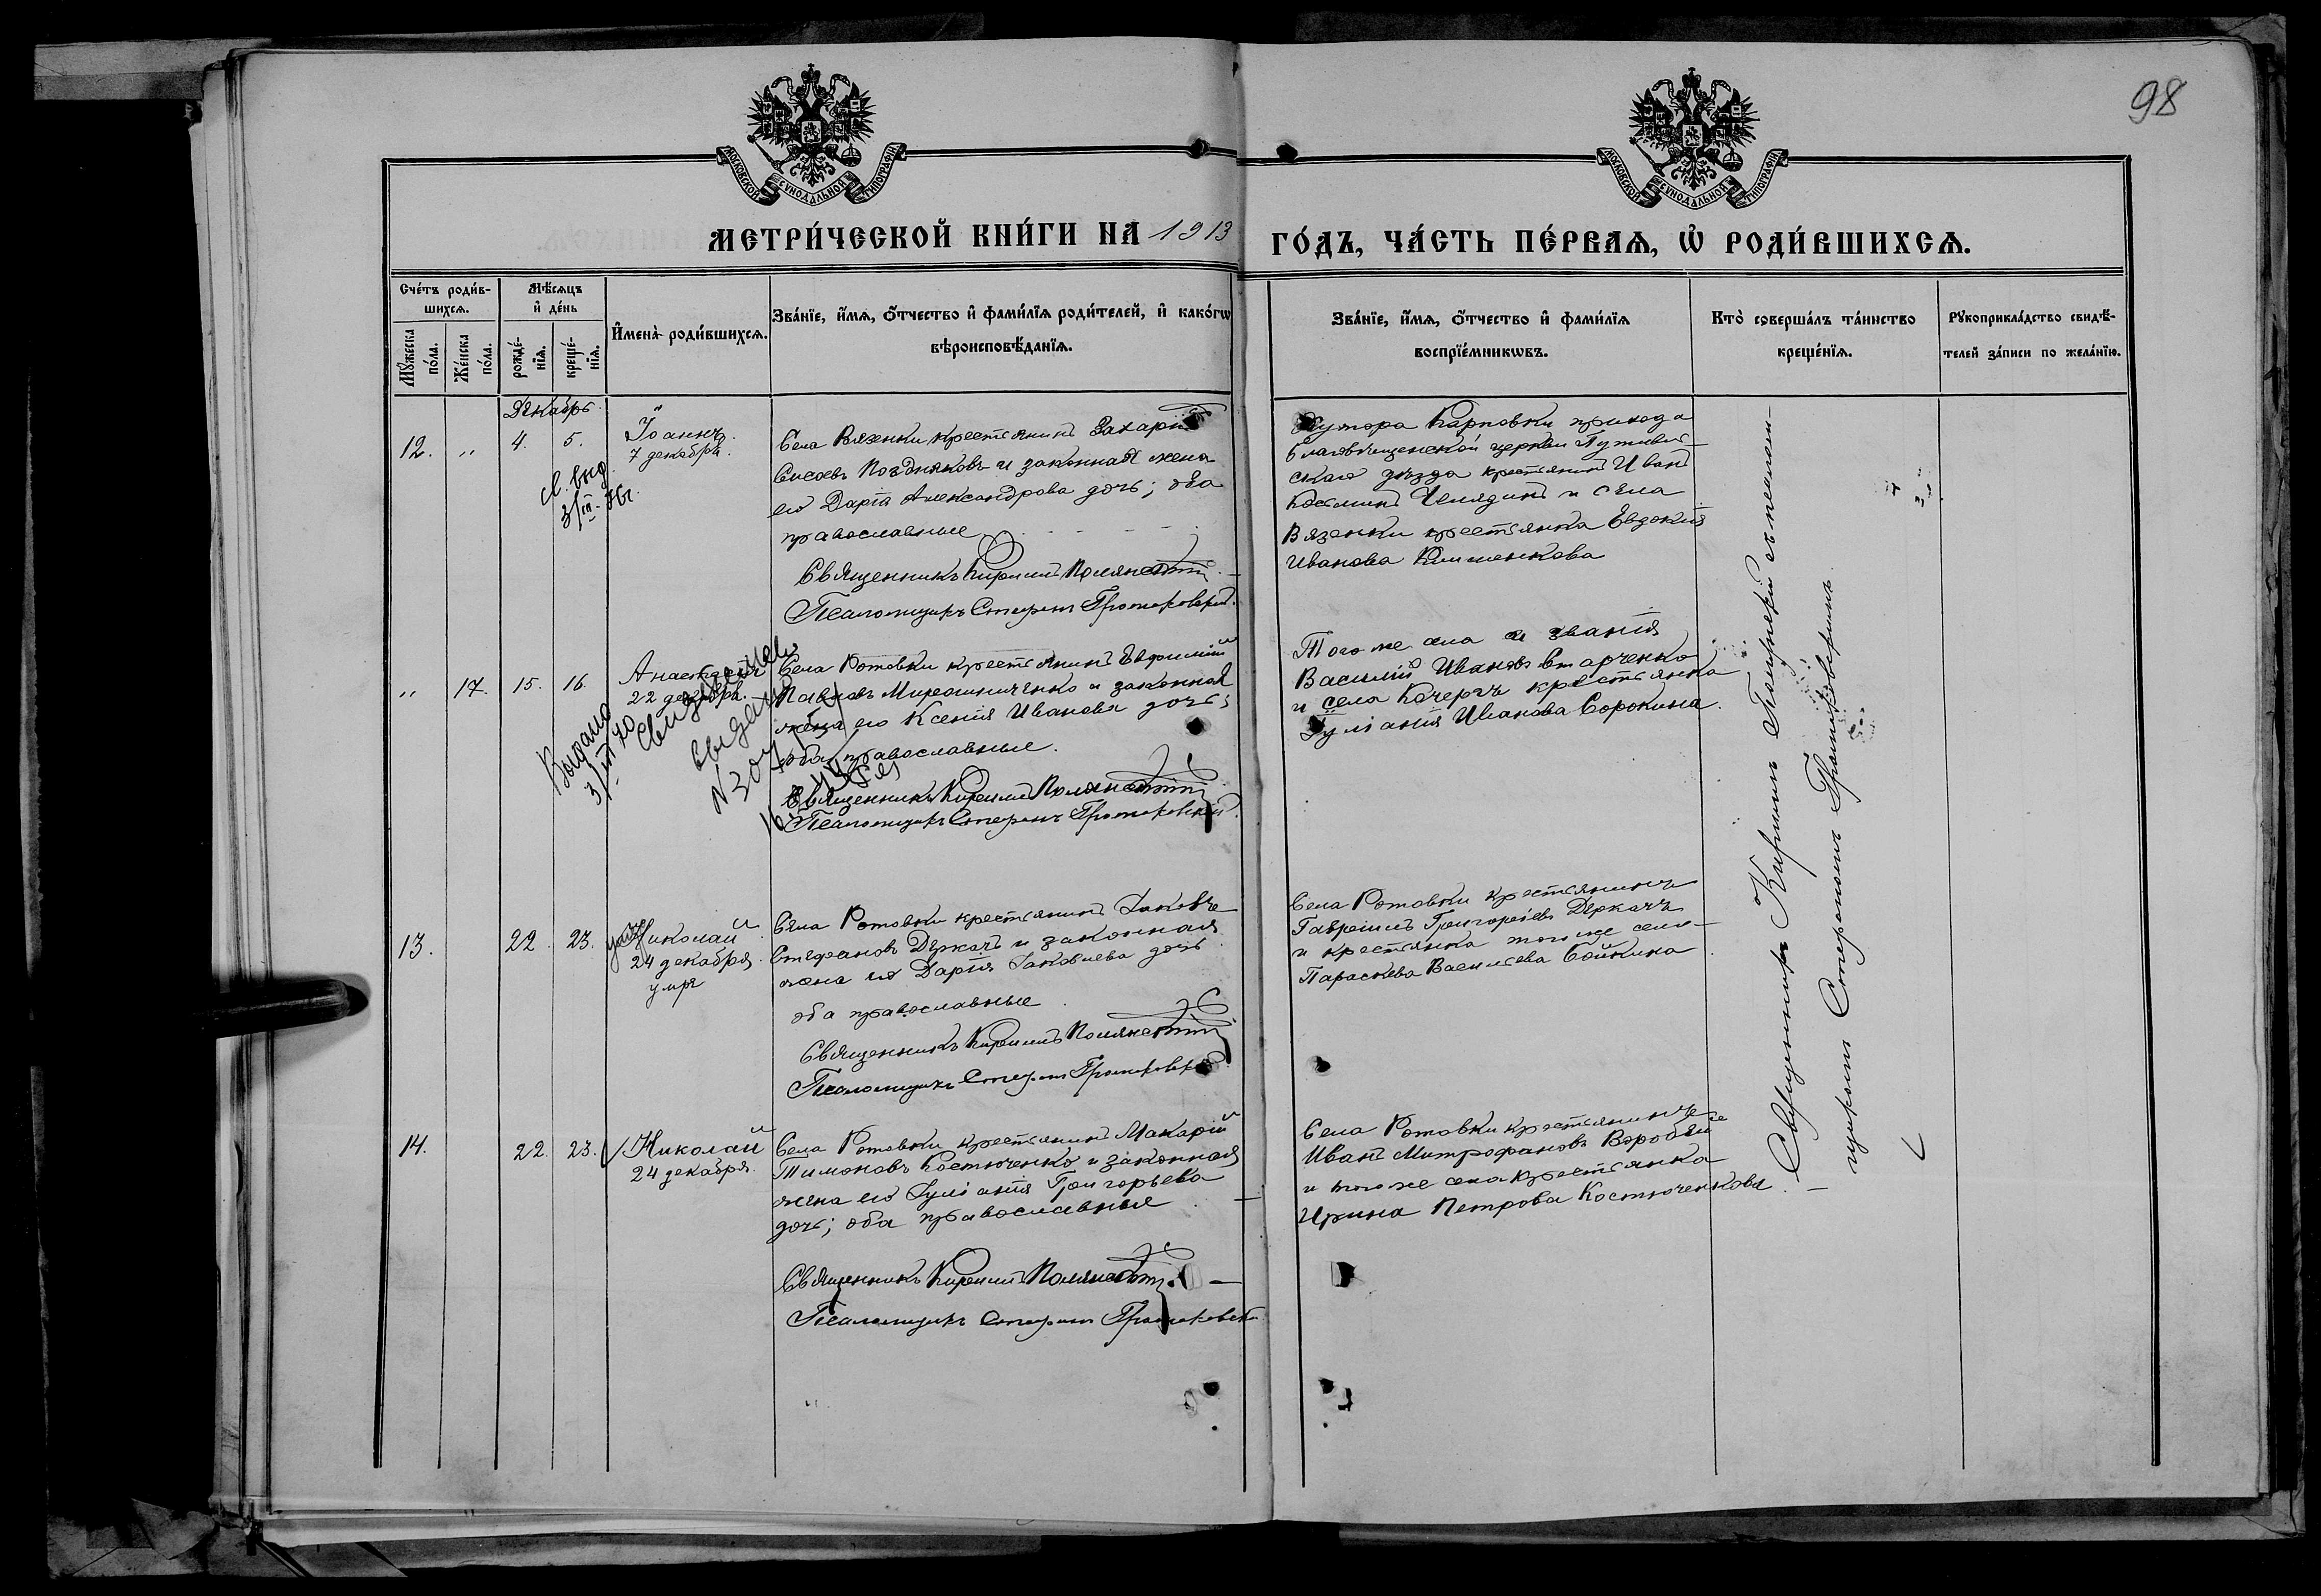 98
МОСКОВСКОЙ СѴНОДАЛЬНОЙ ТИПОГРАФІИ
МОСКОВСКОЙ СѴНОДАЛЬНОЙ ТИПОГРАФІИ
МЕТРИ́ЧЕСКОЙ КНИ́ГИ НА 1913 ГО́ДЪ, ЧА́СТЬ ПЕ́РВАѦ, Ѡ҆ РОДИ́ВШИХСѦ.
Сче́тъ роди́в-
шихсѧ.
Мꙋ́жеска по́ла.
Же́нска по́ла.
Мѣ́сѧцъ
и҆ де́нь
рожде́-
нїѧ.
креще́-
нїѧ.
И҆мена̀ роди́вшихсѧ.
Зва́нїе, и҆́мѧ, ѻ҆́тчество и҆ фами́лїѧ роди́телей, и҆ како́гѡ
вѣроисповѣ́данїѧ.
Зва́нїе, и҆́мѧ, ѻ҆́тчество и҆ фами́лїѧ
воспрїе́мникѡвъ.
Кто̀ соверша́лъ та́инство
креще́нїѧ.
Рꙋкоприкла́дство свидѣ́-
телей за́писи по жела́нїю.
Декабрь
12. " 4. 5. Іоаннъ
7 декабря.
св. выд.
Села Вязенки крестьянинъ Захарій
Сисоевъ Поздняковъ и законная жена
его Дарія Александрова дочь; оба
православные
Священникъ Кириллъ Полянскій
Псаломщикъ Стефанъ
Хутора Карповки прихода
Благовѣщенской церкви Путивль-
скаго уѣзда крестьянинъ Иванъ
Косминъ Челядинъ и села
Вязенки крестьянка Евдокія
Иванова Клименкова
" 17. 15. 16. Анастасія
22 декабря.
Выдано
Свидѣтел
выдано
Села Ротовки крестьянинъ Евфимій
Павловъ Мирошниченко и законная
жена его Ксенія Иванова дочь;
оба православные.
Священникъ Кириллъ Полянскій
Псаломщикъ Стефанъ
Того же села и званія
Василій Ивановъ Старченко
и села Кочергъ крестьянка
Іуліанія Иванова Сорокина.
13. 22. 23. Николай
24 декабря
умре
Села Ротовки крестьянинъ Іаковъ
Стефановъ Деркачъ и законная
жена его Дарія Іаковлева дочь
оба православные
Священникъ Кириллъ Полянскій
Псаломщикъ Стефанъ
Села Ротовки крестьянинъ
Гавріилъ Григорьевъ Деркачъ
и крестьянка того же села
Параскева Васильева Бойкина
14. 22. 23. Николай
24 декабря.
Села Ротовки крестьянинъ Макарій
Тимоновъ Костюченко и законная
жена его Іуліанія Григорьева
дочь; оба православные
Священникъ Кириллъ Полянскій
Псаломщикъ Стефанъ
Села Ротовки крестьянинъ
Иванъ Митрофановъ Воробей
и того же села крестьянка
Ирина Петрова Костюченкова
Священникъ Кириллъ Полянскій съ псалом-
щикомъ Стефаномъ